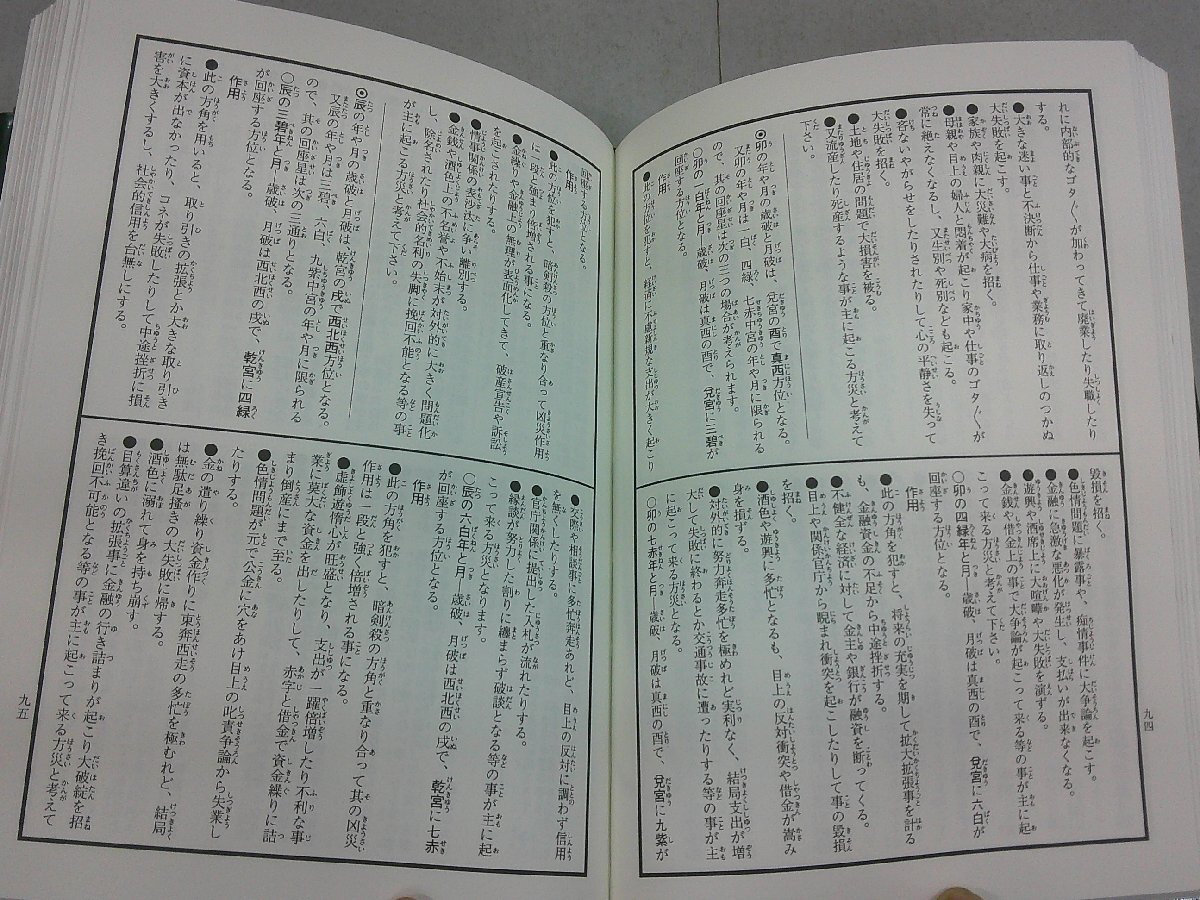 れに内部的なゴタ〱が加わってきて廃業したり失職したり
する。
●大きな迷い事と不決断から仕事や業務に取り返しのつかぬ
大失敗を起こす。
●家族や肉親に大災難や大病を招く。
●母親や目上の婦人と悶着が起こり家中や仕事のゴタ〱が
常に絶えなくなるし、又生別や死別なども起こる。
●吝ないやがらせをしたりされたりして心の半静さを失って
大失敗を招く。
●土地や住居の問題で大損害を被る。
●又流産したり死産するような事が主に起こる方災と考えて
下さい。
◎卯の年や月の歳破と月破は、兌宮の酉で真西方位となる。
又卯の年や月は一白、四緑、七赤中宮の年や月に限られる
ので、其の回座星は次の三つの場合が考えられます。
○卯の一白年と月―歳破、月破は真西の酉で、兌宮に三碧が
回座する方位となる。
作用
●此の方位を犯すと、経済に不慮新規な支出が大きく起こり
毀損を招く。
●色情問題に暴露事や、痴情事件に大争論を起こす。
●金融に急激な悪化が発生し、支払いが出来なくなる。
●遊興や酒席上に大喧嘩や大失敗を演ずる。
●金銭や借金上の事で大争論が起こって来る等の事が主に起
こって来る方災と考えて下さい。
○卯の四緑年と月―歳破、月破は真西の酉で、兌宮に六白が
回座する方位となる。
作用
●此の方角を犯すと、将来の充実を期して拡大拡張事を計る
も、金融資金の不足から中途挫折する。
●不健全な経済に対して金主や銀行が融資を断ってくる。
●目上や関係官庁から睨まれ衝突を起こしたりして事の毀損
を招く。
●酒色や遊興に多忙となるも、目上の反対衝突や借金が嵩み
身を損ずる。
●対外的に努力奔走多忙を極めれど実利なく、結局支出が増
大して失敗に終わるとか交通事故に遭ったりする等の事が主
に起こって来る方災となる。
○卯の七赤年と月―歳破、月破は真西の酉で、兌宮に九紫が
九四
回座する方位となる。
作用
●此の方位を犯すと、暗剣殺の方位と重なり合って凶災作用
に一段と強まり倍増される事になる。
●金繰りや金融上の無理が表面化してきて、破産宣告や訴訟
を起こされたりする。
●情事関係の表沙汰に争い離別する。
●金銭や酒色上の不名誉や不始末が対外的に大きく問題化
し、除名されたり社会的名利の失脚に挽回不能となる等の事
が主に起こる方災と考えて下さい。
◎辰の年や月の歳破と月破は、乾宮の戌で西北西方位となる。
又辰の年や月は三碧、六白、九紫中宮の年や月に限られる
ので、其の回座星は次の三通りとなる。
○辰の三碧年と月―歳破、月破は西北西の戌で、乾宮に四緑
が回座する方位となる。
作用
●此の方角を用いると、取り引きの拡張とか大きな取り引き
に資本が出なかったり、コネが失敗したりして中途挫折に損
害を大きくするし、社会的信用を台無しにする。
●交際や相談事に多忙奔走あれど、目上の反対に調わず信用
を無くしたりする。
●官庁関係に提出した入札が流れたりする。
●縁談が努力した割りに纏まらず破談となる等の事が主に起
こって来る方災となります。
○辰の六白年と月―歳破、月破は西北西の戌で、乾宮に七赤
が回座する方位となる。
作用
●此の方角を犯すと、暗剣殺の方角と重なり合って其の凶災
作用は一段と強く倍増される事になる。
●虚飾遊惰心が旺盛となり、支出が一躍倍増したり不利な事
業に莫大な資金を出したりして、赤字と借金で資金繰りに詰
まり倒産にまで至る。
●色情問題が元で公金に穴をあけ目上の叱責争論から失業し
たりする。
●金の遣り繰り資金作りに東奔西走の多忙を極むれど、結局
は無駄足掻きの大失敗に帰する。
●酒色に溺れて身を持ち崩す。
●目算違いの拡張事に金融の行き詰まりが起こり大破綻を招
き挽回不可能となる等の事が主に起こって来る方災と考えて
九五